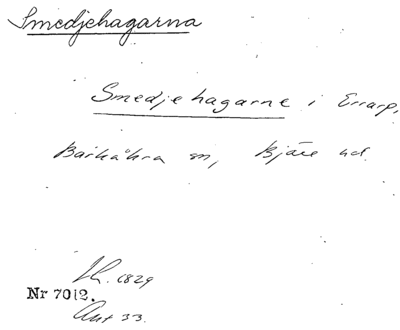 Smedjehagarna
Smedjehagarne i Errarp,
Barkåkra sn, Bjäre hd.
1829
Nr 7012.
Akt 33.